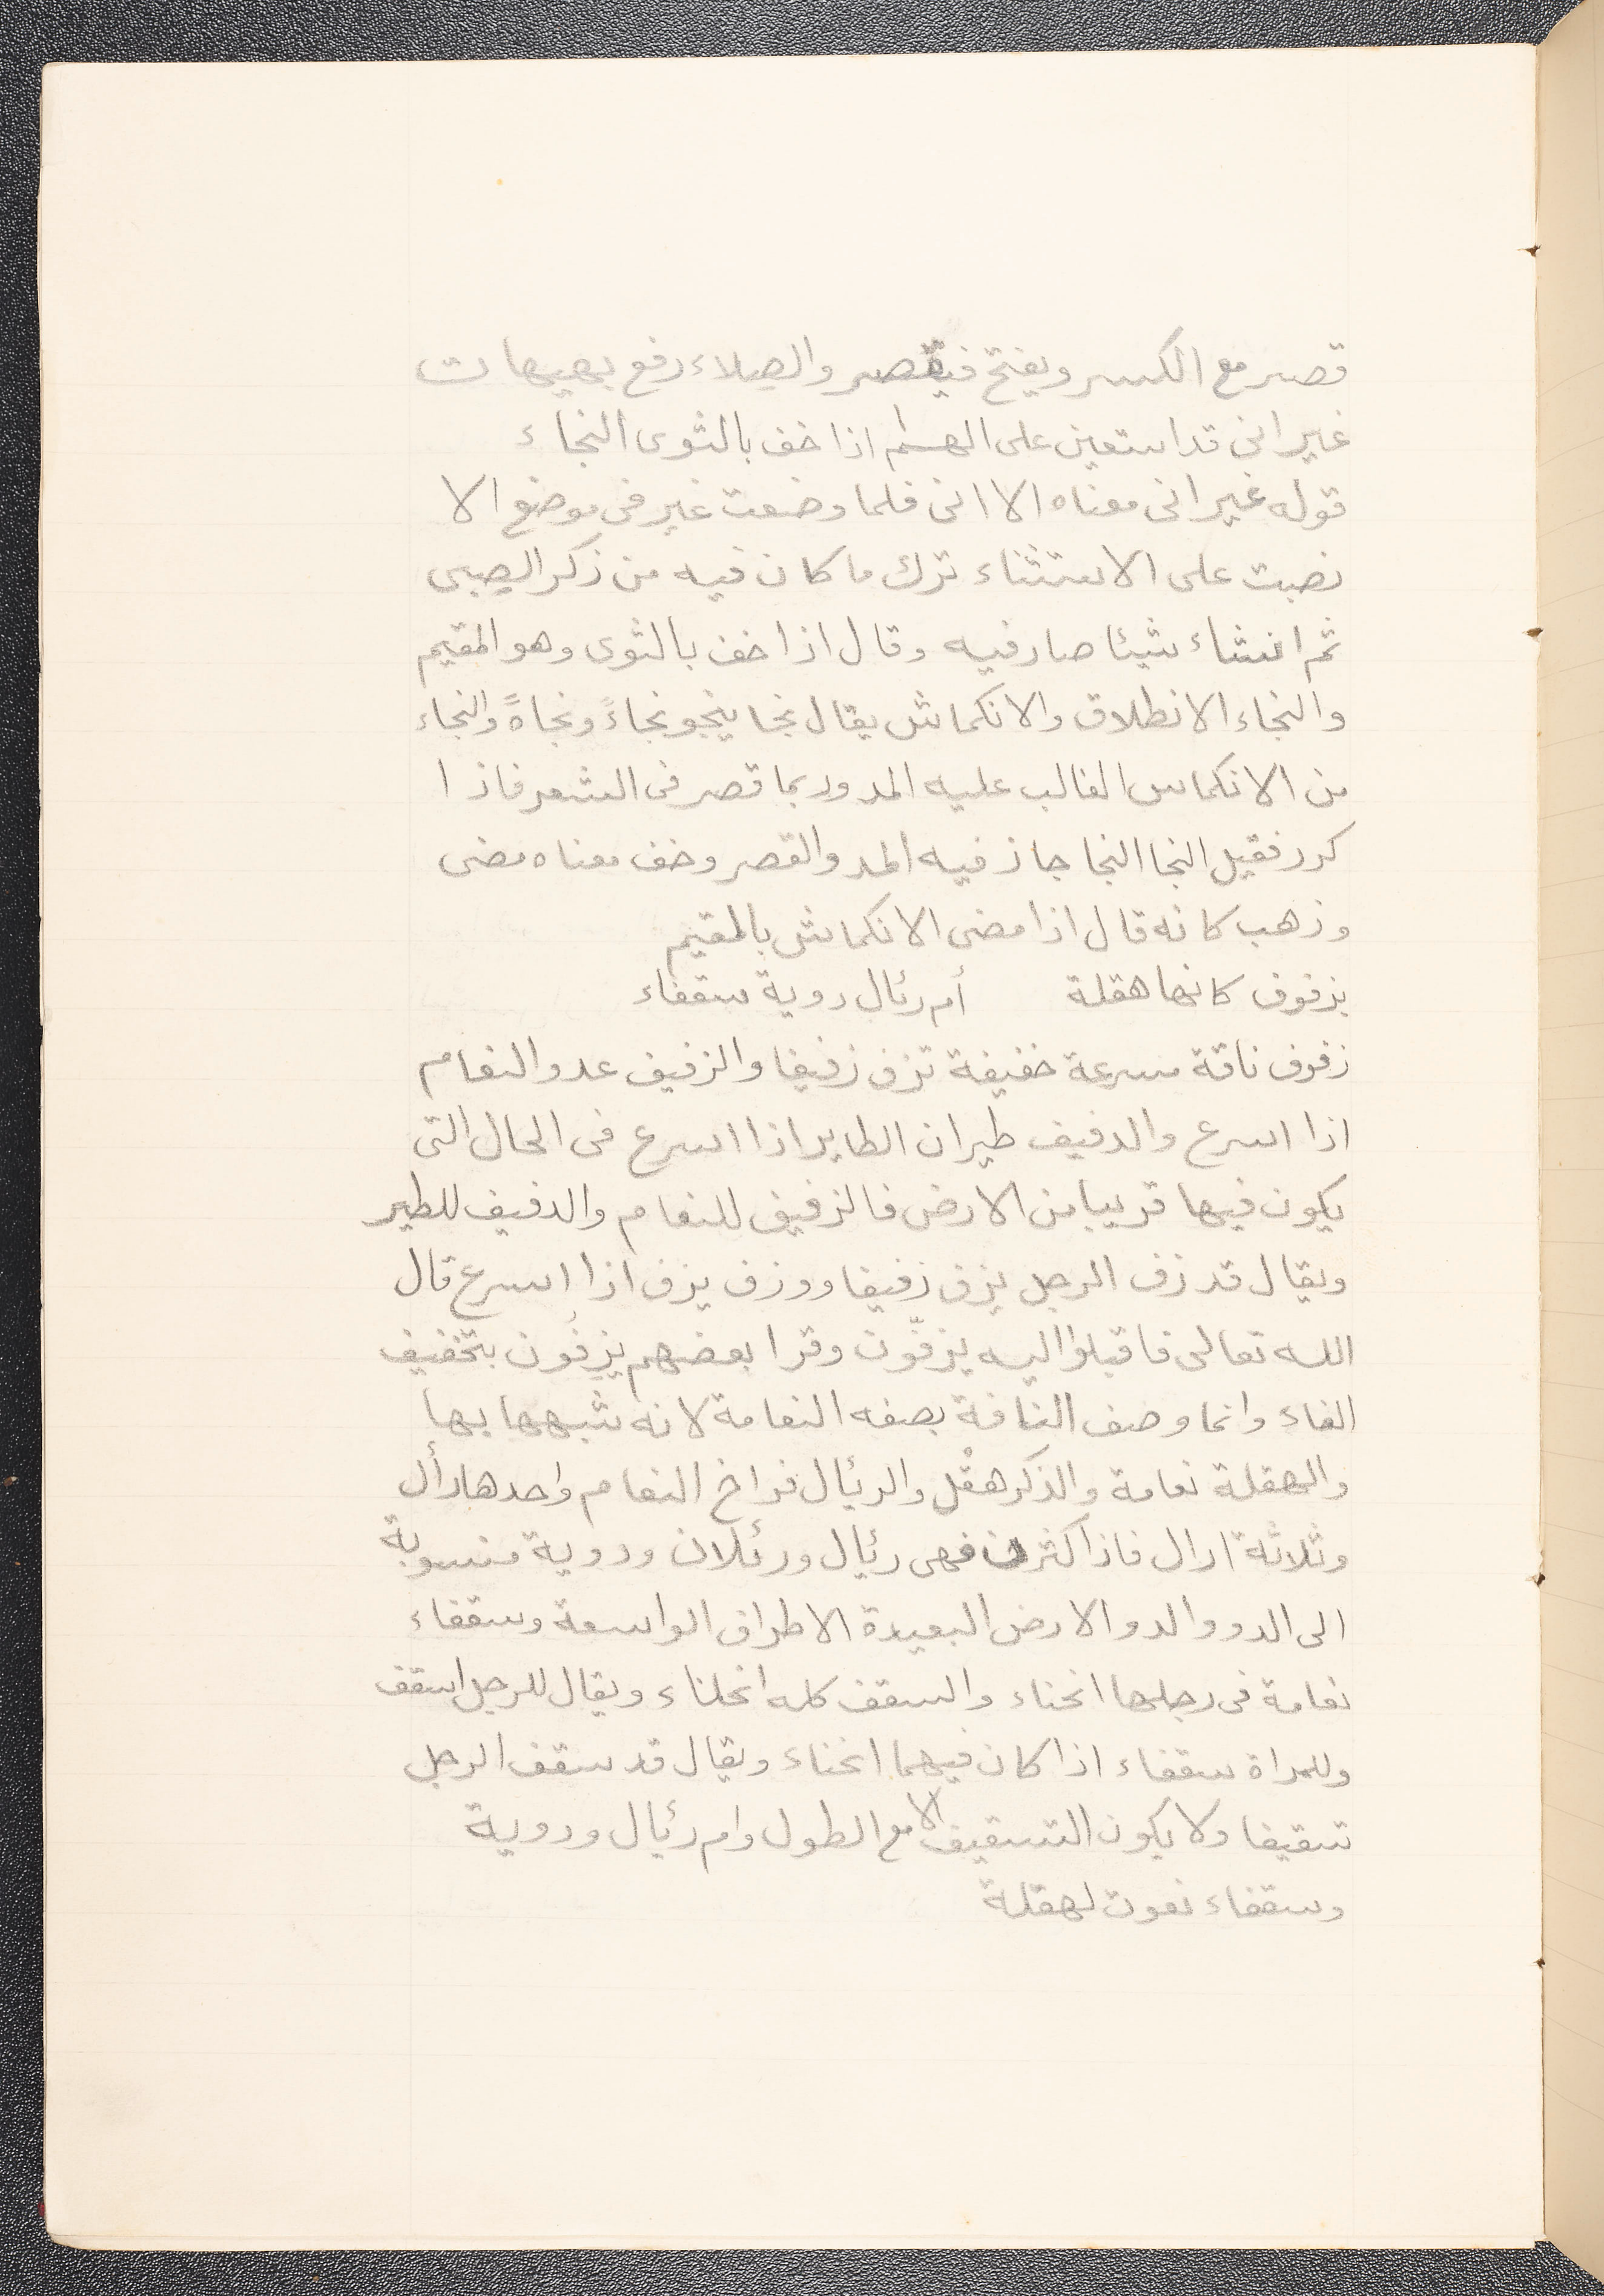 قصر مع الكسر ويفتح فيقصر والصلاء رفع بهيهات
غير انى قد استعين على الهم اذا خف بالثوى النجاء
قوله غير انى معناه الا انى فلما وضعت غير فى موضع الا
نصبت على الاستثناء ترك ما كان فيه من ذكر الصبى
ثم انشاء شيئا صار فيه وقال اذا خف بالثوى وهو المقيم
والنجاء الانطلاق والانكماش يقال نجا ينجو نجاءً ونجاةً والنجاء
من الانكماس الغالب عليه المد وربما قصر فى الشعر فاذا
كرر فقيل النجا النجا جاز فيه المد والقصر وخف معناه مضى
وذهب كانه قال اذا مضى الانكماش بالمقيم
بزفوف كانها هقلة أم رئال دوية سقفاء
زفوف ناقة مسرعة خفيفة تزف زفيفا والزفيف عدو النعام
اذا اسرع والدفيف طيران الطاير اذا اسرع فى الحال التى
يكون فيها قريبا من الارض فالزفيف للنعام والدفيف للطير
ويقال قد زف الرجل يزف زفيفا ووزف يزف اذا اسرع قال
الله تعالى فاقبلوا اليه يزفّون وقرا بعضهم يزِفُون بتخفيف
الفاء وانما وصف الناقة بصفه النعامة لانه شبهها بها
والهقلة نعامة والذكر هقْل والرئال فراخ النعام واحدها رأل
وثلاثة ارال فاذا كثرن فهى رئال ورئلان ودوية منسوبة
الى الدو والدو الارض البعيدة الاطراف الواسعة وسقفاء
نعامة فى رجلها انحناء والسقف كله انحلناء ويقال للرجل اسقف
وللمراة سقفاء اذا كان فيهما انحناء ويقال قد سقف الرجل
تسقيفا ولا يكون التسقيف الا مع الطول وام رئال ودوية
وسقفاء نعوت لهقلة